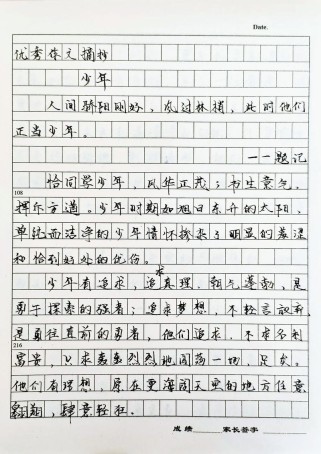 Date.
优秀作文摘抄
少年
人间骄阳刚好，风过林梢，此时他们
正当少年。
——题记
恰同学少年，风华正茂；书生意气，
108
挥斥方遒。少年时期如旭日东升的太阳，
单纯而洁净的少年情怀掺杂了明显的羞涩
和恰到好处的忧伤。
少年有追求，求真理，朝气蓬勃，是
勇于探索的强者；追求梦想，不轻言放弃，
是勇往直前的勇者，他们追求，不求名利
216
富贵，只求轰轰烈烈地闯荡一场，足矣。
他们有理想，愿在更海阔天空的地方任意
翱翔，肆意轻狂。
成绩 家长签字